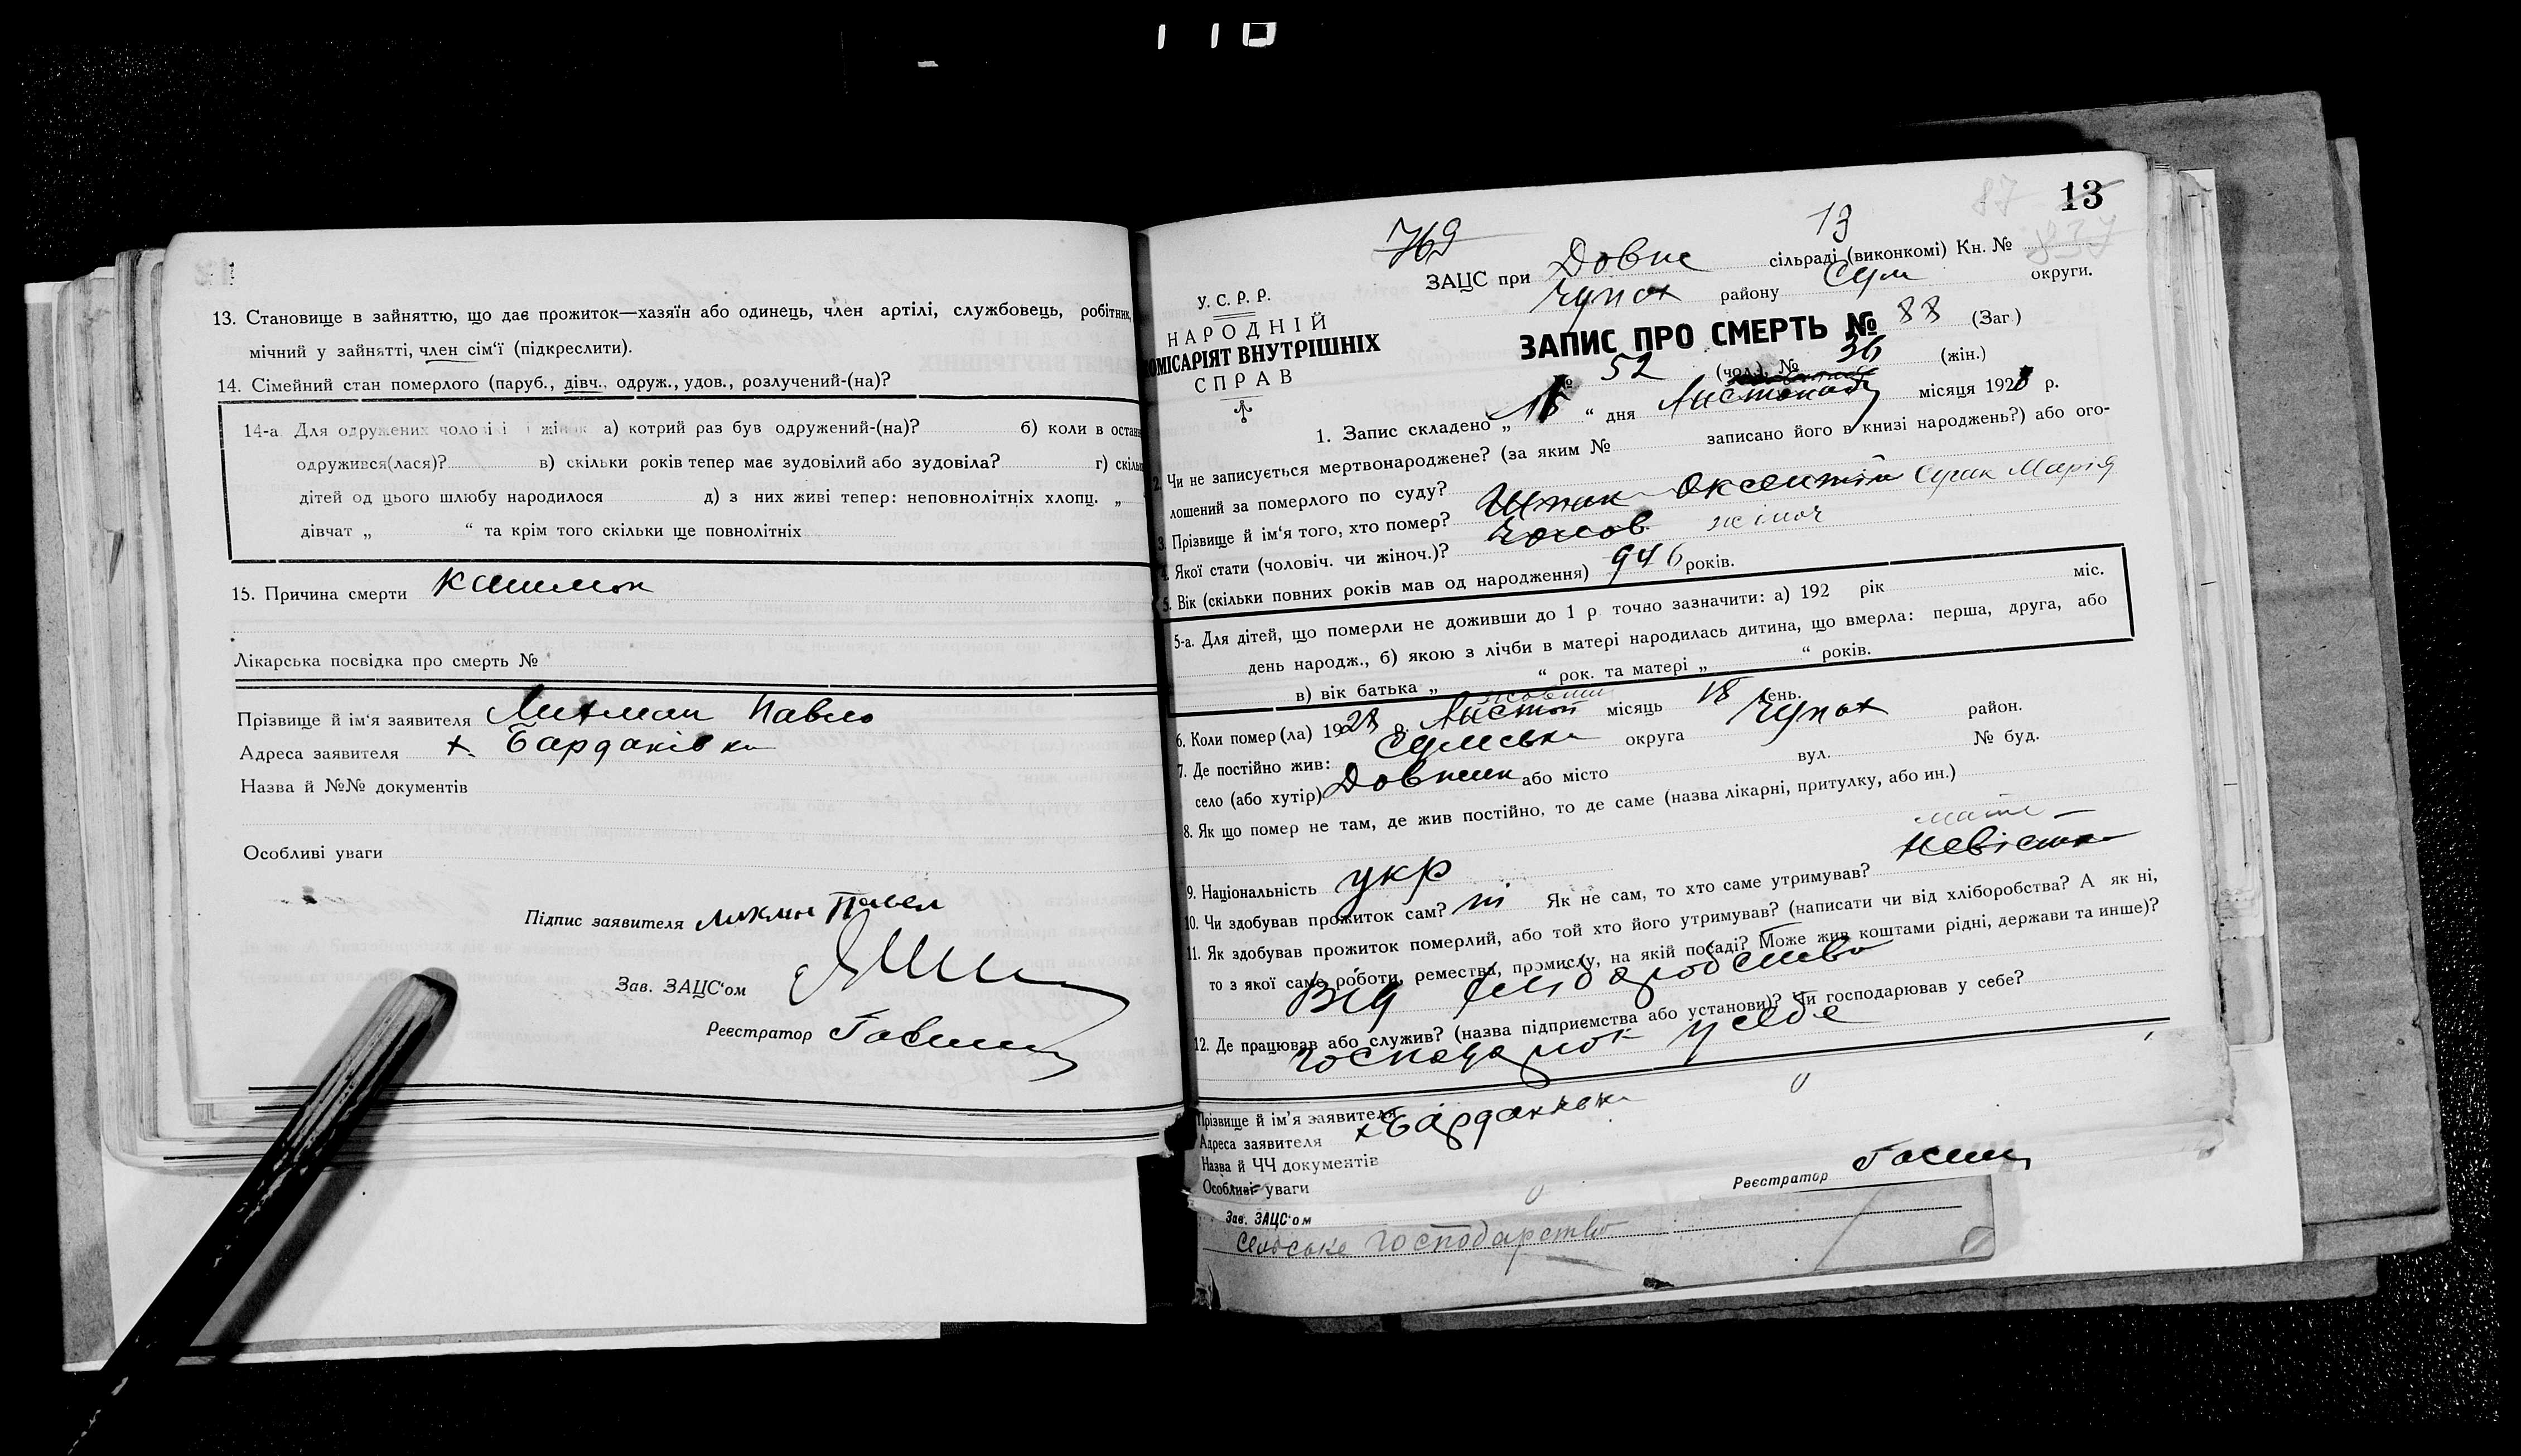 13. Становище в зайняттю, що дає прожиток—хазяїн або одинець, член артілі, службовець, робітник,
мічний у зайнятті, член сім'ї (підкреслити).
14. Сімейний стан померлого (паруб., дівч., одруж., удов., розлучений-(на)?
14-а. Для одружених чоловіків і жінок а) котрий раз був одружений-(на)? б) коли в останн
одружився(лася)? в) скільки років тепер має зудовілий або зудовіла? г) скільк
дітей од цього шлюбу народилося д) з них живі тепер: неповнолітніх хлопц. „
дівчат „ “ та крім того скільки ще повнолітніх
15. Причина смерти
Лікарська посвідка про смерть №
Прізвище й ім'я заявителя Павло
Адреса заявителя х. Бардаківка
Назва й №№ документів
Особливі уваги
Підпис заявителя Павел
Зав. ЗАЦС'ом
Реєстратор
13
87
769
13
ЗАЦС при Довж сільраді (виконкомі) Кн. №
Чупах району Сум округи.
У. С. Р. Р.
НАРОДНІЙ
КОМІСАРІЯТ ВНУТРІШНІХ
СПРАВ
ЗАПИС ПРО СМЕРТЬ № 88 (Заг.)
№ 52 (чол.), № 36 (жін.)
1. Запис складено „ “ дня Листопад місяця 1928 р.
2. Чи не записується мертвонароджене? (за яким № записано його в книзі народжень?) або ого-
лошений за померлого по суду?
3. Прізвище й ім'я того, хто помер? Шпак Оксентій Марія
4. Якої стати (чоловіч. чи жіноч.)? Чолов жіноч
5. Вік (скільки повних років мав од народження) 94 6 років.
5-а. Для дітей, що померли не доживши до 1 р. точно зазначити: а) 192 рік міс.
день народж., б) якою з лічби в матері народилась дитина, що вмерла: перша, друга, або
в) вік батька „ “ рок. та матері „ “ років.
6. Коли помер (ла) 1928 р. Листоп місяць 18 день.
7. Де постійно жив: Сумська округа Чупах район.
село (або хутір) Довжик або місто вул. № буд.
8. Як що помер не там, де жив постійно, то де саме (назва лікарні, притулку, або ин.)
9. Національність укр
мати
10. Чи здобував прожиток сам? ні Як не сам, то хто саме утримував? Невістка
11. Як здобував прожиток померлий, або той хто його утримував? (написати чи від хліборобства? А як ні,
то з якої саме роботи, ремества, промислу, на якій посаді? Може жив коштами рідні, держави та инше)?
Від хліборобства
12. Де працював або служив? (назва підприємства або установи)? Чи господарював у себе?
господарює у себе
Прізвище й ім'я заявителя
Адреса заявителя х Бардаківка
Назва й ЧЧ документів
Особливі уваги
Реєстратор
Зав. ЗАЦС'ом
сільське господарство